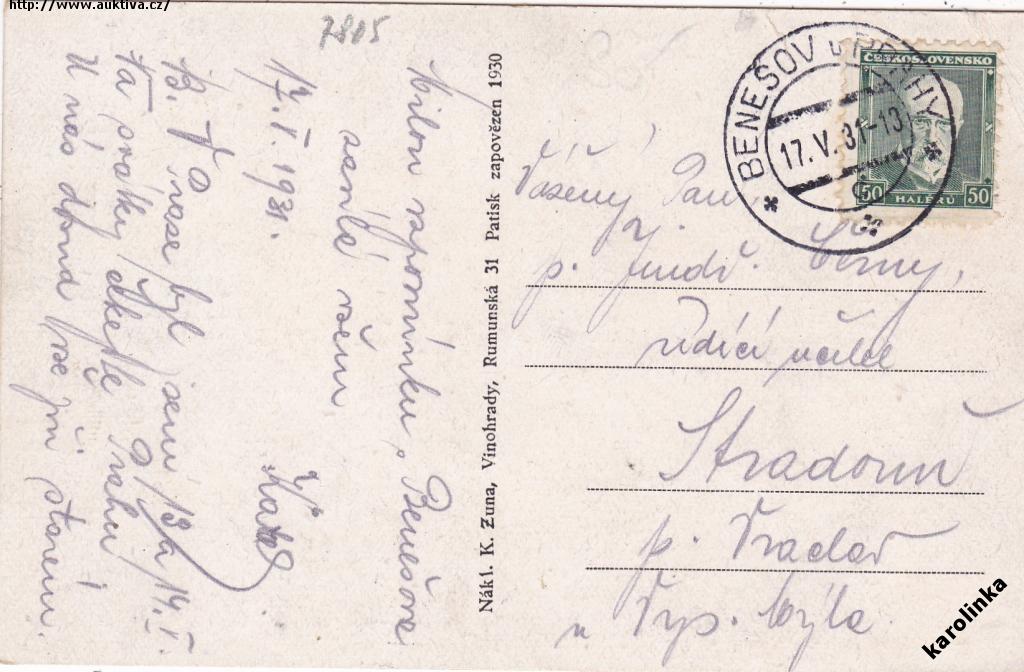 http://www.auktiva.cz/
7805
Milou vzpomínku, Benešova
zasílá všem
17. V. 1931.
Karel
B. V Praze byl jsem 13/ a 14. V.
za svátky
Prahu!
U nás doma vše při starém.
Nákl. K. Zuna, Vinohrady, Rumunská 31 Patisk zapovězen 1930
BENEŠOV u PRAHY
17. V. 31-13
ČESKOSLOVENSKO
50 HALÉŘŮ 50
Vážený Pan
p. Jindř. Černý,
řídící učitel
Stradouň
p. Vraclav
u Vys. Mýta.
karolinka